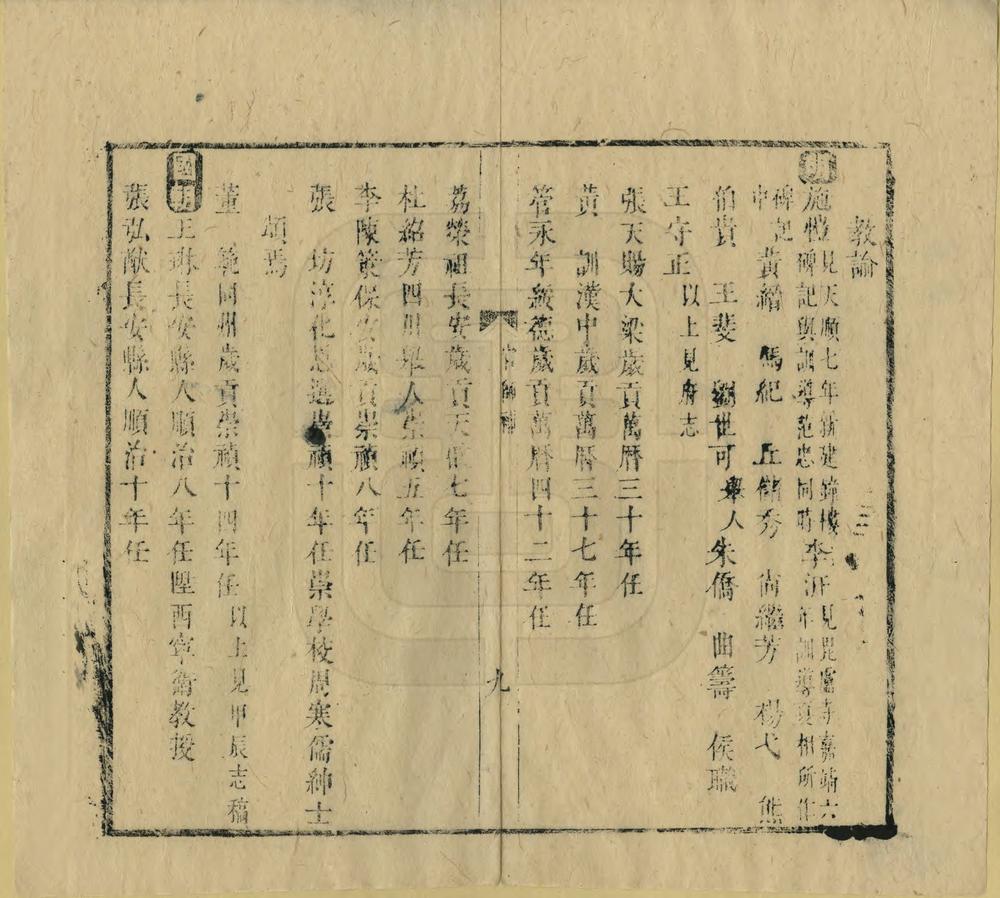 教諭
明 施禮見天順七年新建鐘樓碑記與訓導范忠同時 李沂見毘盧寺嘉靖六年訓導夏相所作
碑記中 黃縉 馬紀 丘錦秀 尚繼芳 楊弋 熊
伯貴 王斐 劉世可舉人 朱僑 曲籌 侯職
王守正以上見府志
張天賜大梁歲貢萬曆三十年任
黃 訓漢中歲貢萬曆三十七年任
管永年綏德歲貢萬曆四十二年任
官師補 九
荔榮祖長安歲貢天啟七年任
杜紹芳四川舉人崇禎五年任
李陳策保安歲貢崇禎八年任
張 坊淳化恩選崇禎十年任崇學校周寒儒紳士
頌焉
董 同州歲貢崇禎十四年任以上見甲辰志稿
國朝 王琳長安縣人順治八年任陞西寧衛教授
張弘猷長安縣人順治十年任